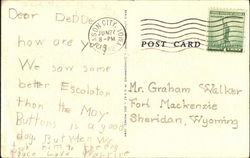 Dear DeDDe
how are you
We saw some
better Escalator
than the May.
Buttons is a good
dog. But when we
JUN 24
8-PM
POST CARD
Mr. Graham Walker
Fort Mackenzie
Sheridan, Wyoming